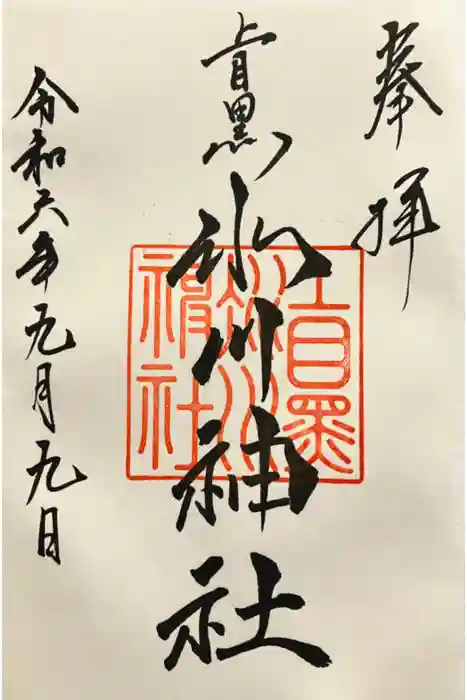 奉拝
上目黒
氷川神社
令和六年九月九日
上目黒
氷川
神社